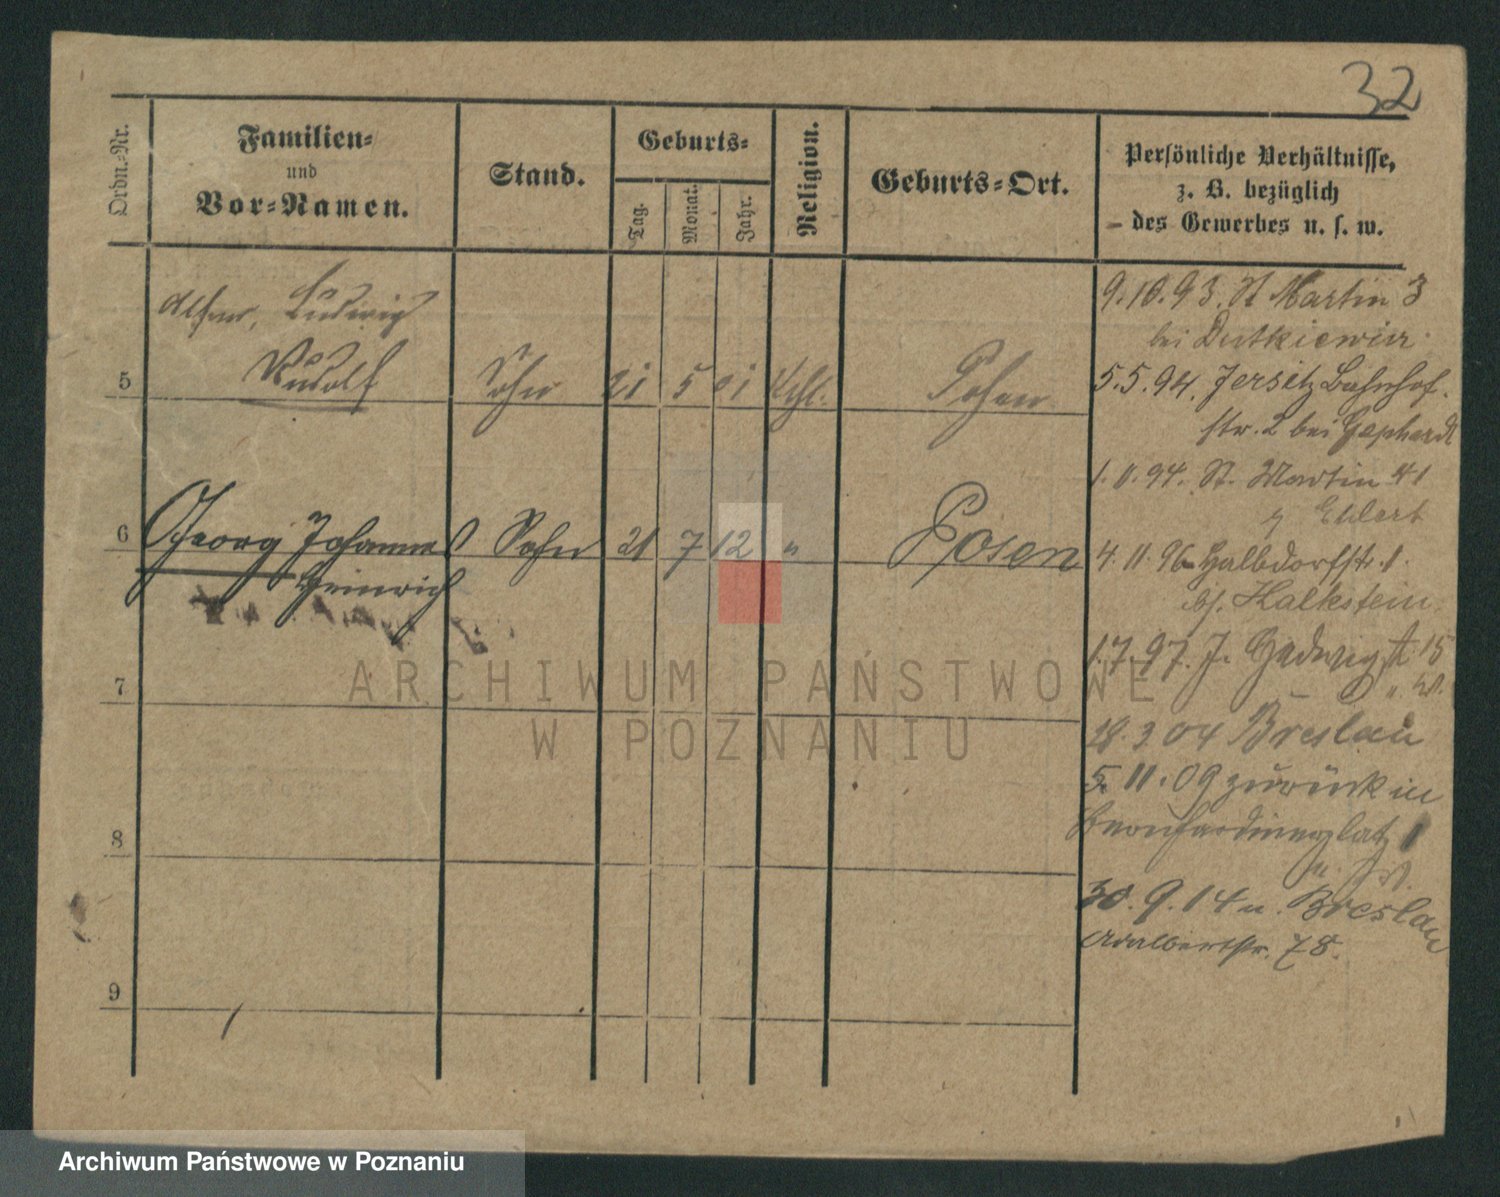 32
Ordn.-Nr.
Familien-
und
Vor-Namen.
Stand.
Geburts-
Tag.
Monat.
Jahr.
Religion.
Geburts-Ort.
Persönliche Verhältnisse,
z. B. bezüglich
des Gewerbes u. s. w.
Ludwig
5 Rudolf Sohn 21 5 01 Kthl. Posen
6 Georg Johannes Sohn 21 7 12 " Posen
Heinrich
7
8
9
9.10.93. St Martin 3
bei Dutkiewicz
5.5.94. Jersitz Bahnhof-
str. 2 bei Gephardt
94. St. Martin 41
Ehlert
4.11.96 Halbdorfstr. 1.
bei Kalkstein
1.7.97. J. Hedwigst 15
18.3 04 Breslau
5.11.09 zurück in
Bernhardinerplatz 1
30.9.14 n. Breslau
Adalbertstr. 78.
ARCHIWUM PAŃSTWOWE
W POZNANIU
Archiwum Państwowe w Poznaniu